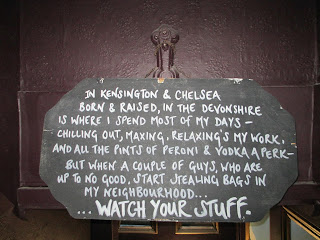 IN KENSINGTON & CHELSEA
BORN & RAISED, IN THE DEVONSHIRE
IS WHERE I SPEND MOST OF MY DAYS -
CHILLING OUT, MAXING, RELAXING'S MY WORK,
AND ALL THE PINTS OF PERONI & VODKA A PERK -
BUT WHEN A COUPLE OF GUYS, WHO ARE
UP TO NO GOOD, START STEALING BAGS IN
MY NEIGHBOURHOOD...
... WATCH YOUR STUFF.